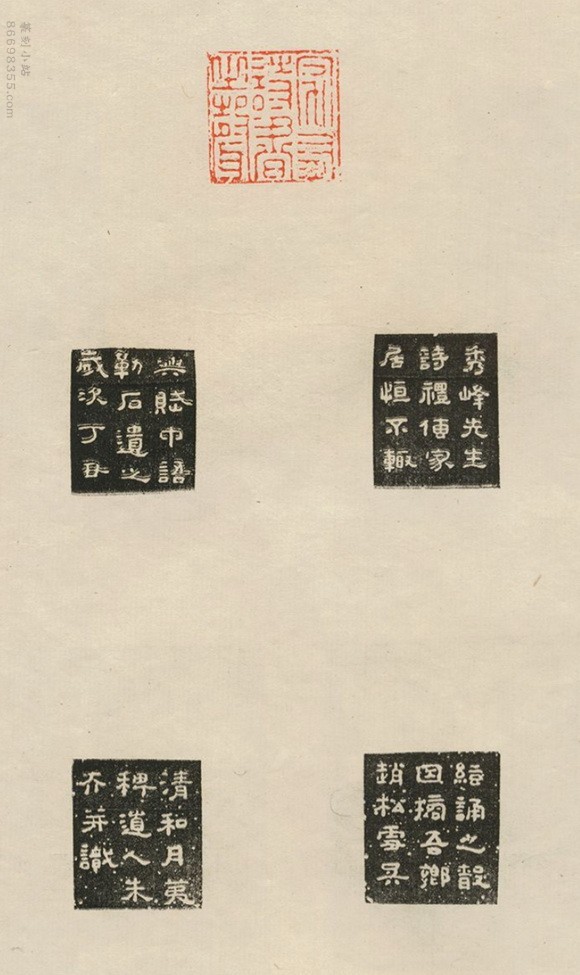 家有
詩書
之聲
秀峰先生
詩禮傳家
居恒不輟
絃誦之聲
因摘吾鄉
趙松雪吳
興賦中語
勒石遺之
歲次丁丑
清和月荑
稗道人朱
介并識
篆刻小站
86698355.com